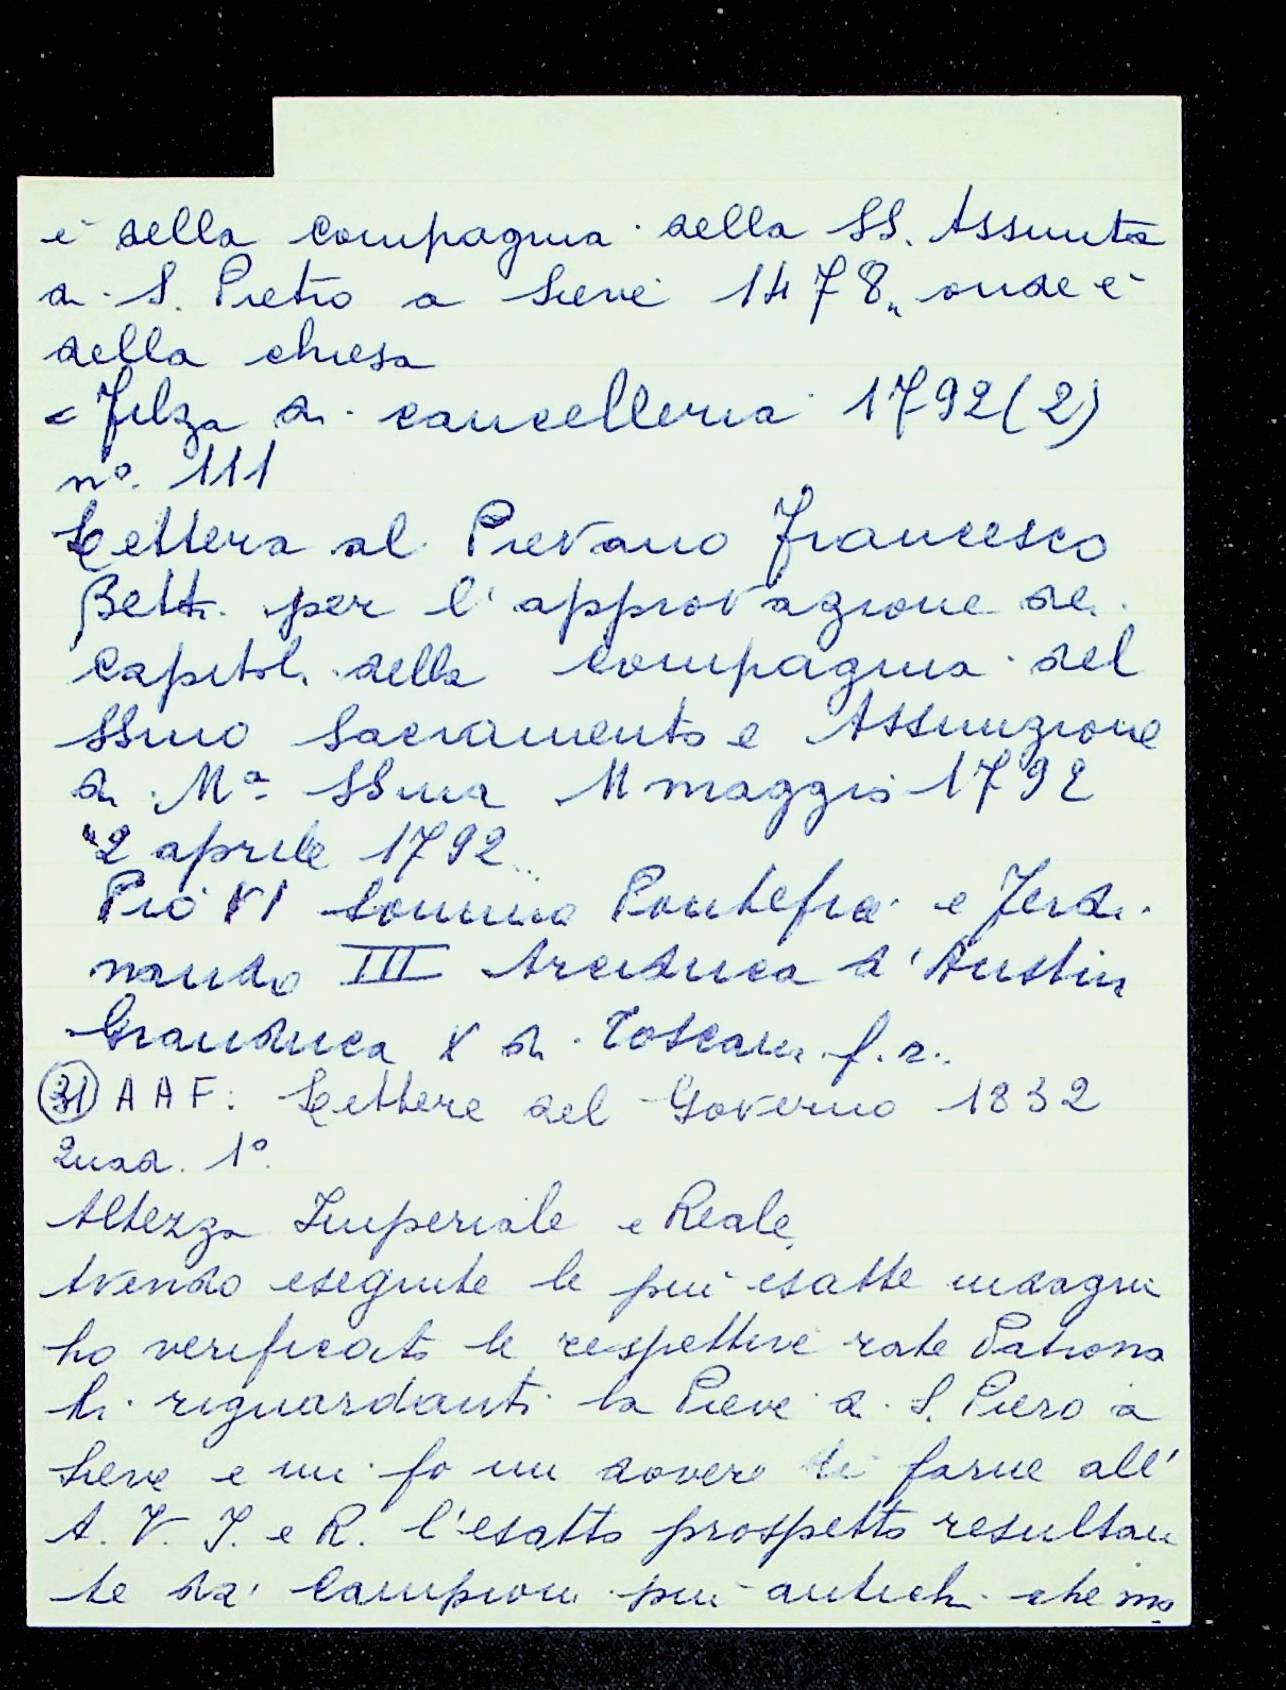 è della compagnia della SS. Assunta
di S. Pietro a Sieve 1478" onde è
della chiesa
= Filza di cancelleria 1792 (2)
n° 111
Lettera al Pievano Francesco
Betti per l'approvazione dei
Capitoli della Compagnia del
SSmo Sacramento e Assunzione
di Mª SSma 11 maggio 1792
"2 aprile 1792
Pio VI Sommo Pontefice e Ferdi
nando III Arciduca d'Austria
Granduca X di Toscana f. r.
(31) A A F: Lettere del Governo 1832
Quad. 1°
Altezza Imperiale e Reale,
Avendo eseguite le più esatte indagini
ho verificato le respettive rate Patrona
li riguardanti la Pieve di S. Piero a
Sieve e mi fo un dovere di farne all'
A. V. I. e R. l'esatto prospetto resultan
te da' Campioni più antichi che ino